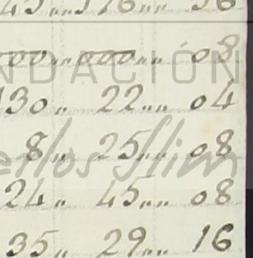 45,,, 576,,, 56
000,,,000,,, 08
NDACIÓN
130,, 22,,, 04
8,, 25,,, 08
24,, 45,,, 08
35,, 29,,, 16